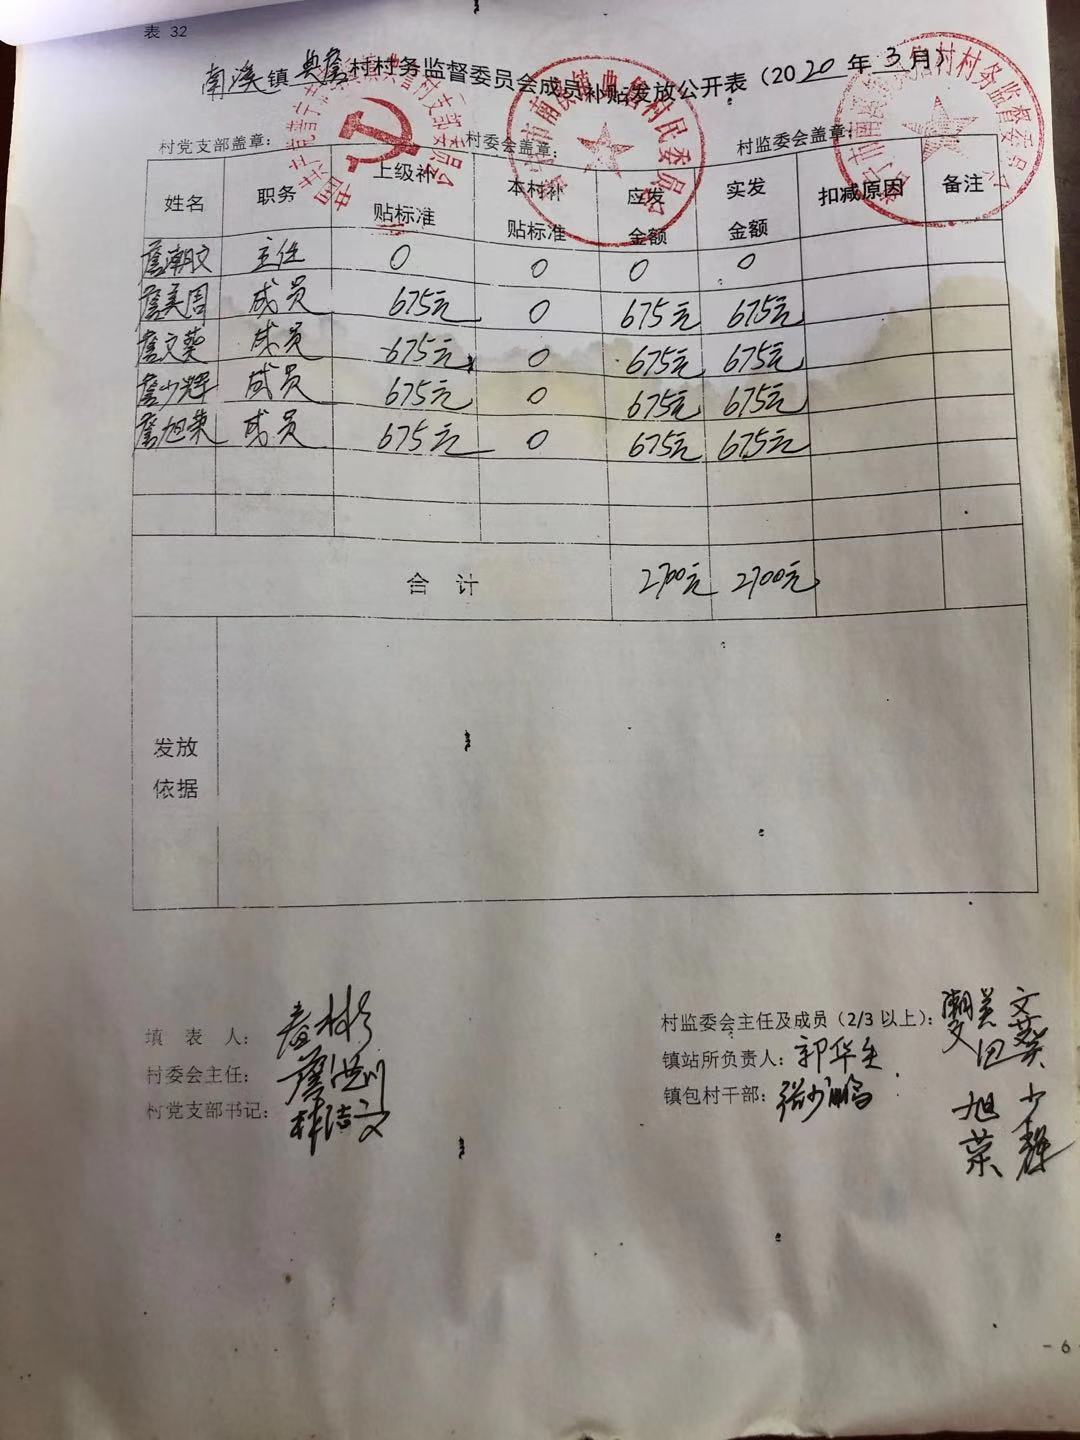 表 32
南溪镇典詹村村务监督委员会成员补贴发放公开表（2020年3月）
村党支部盖章： 村委会盖章： 村监委会盖章：
姓名 职务 上级补贴标准 本村补贴标准 应发金额 实发金额 扣减原因 备注
詹潮文 主任 0 0 0 0
詹美周 成员 675元 0 675元 675元
詹文葵 成员 675元 0 675元 675元
詹少辉 成员 675元 0 675元 675元
詹旭荣 成员 675元 0 675元 675元
合 计 2700元 2700元
发放依据
填 表 人：
村委会主任：
村党支部书记： 林洁文
村监委会主任及成员（2/3 以上）： 潮文 美周 文葵 旭荣 少辉
镇站所负责人： 郭华生
镇包村干部： 张少鹏
- 6